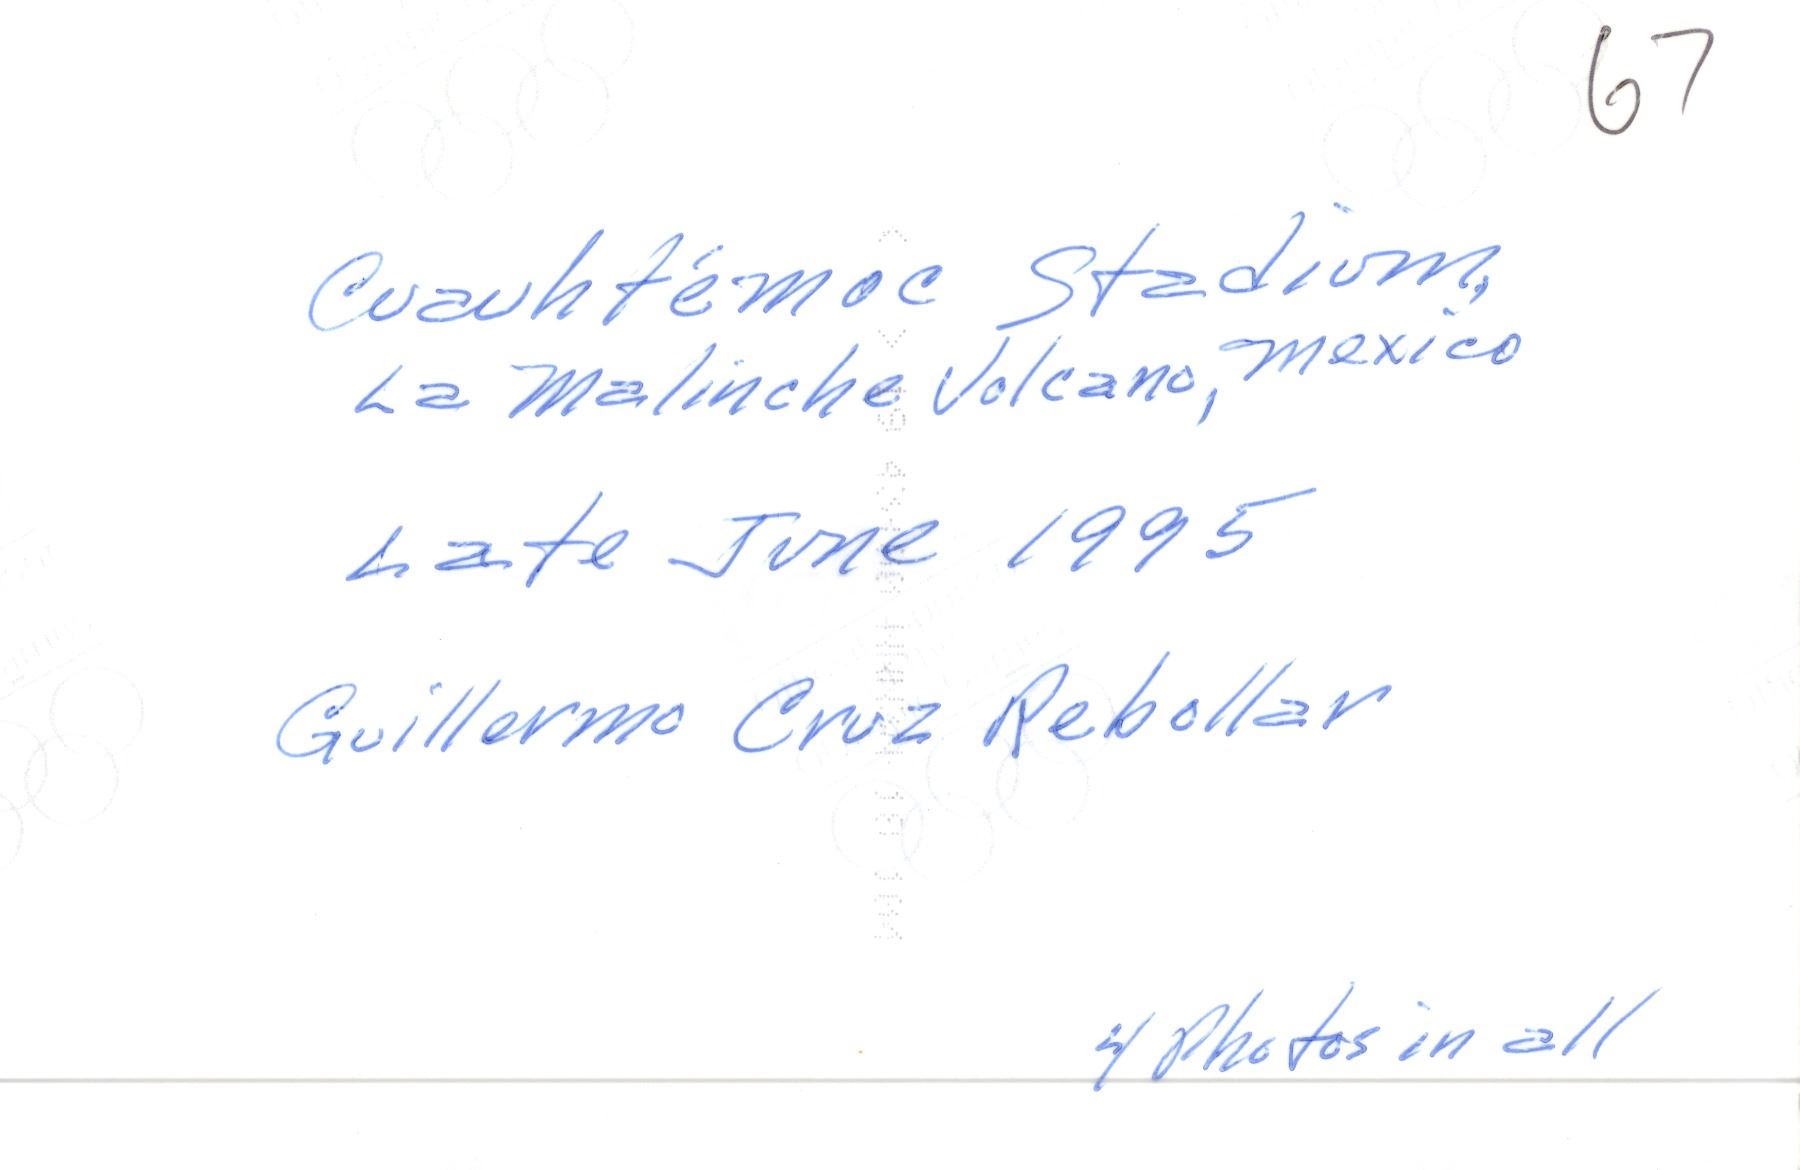 67
Cuauhtémoc Stadium,
La Malinche Volcano, Mexico
Late June 1995
Guillermo Cruz Rebollar
4 Photos in all